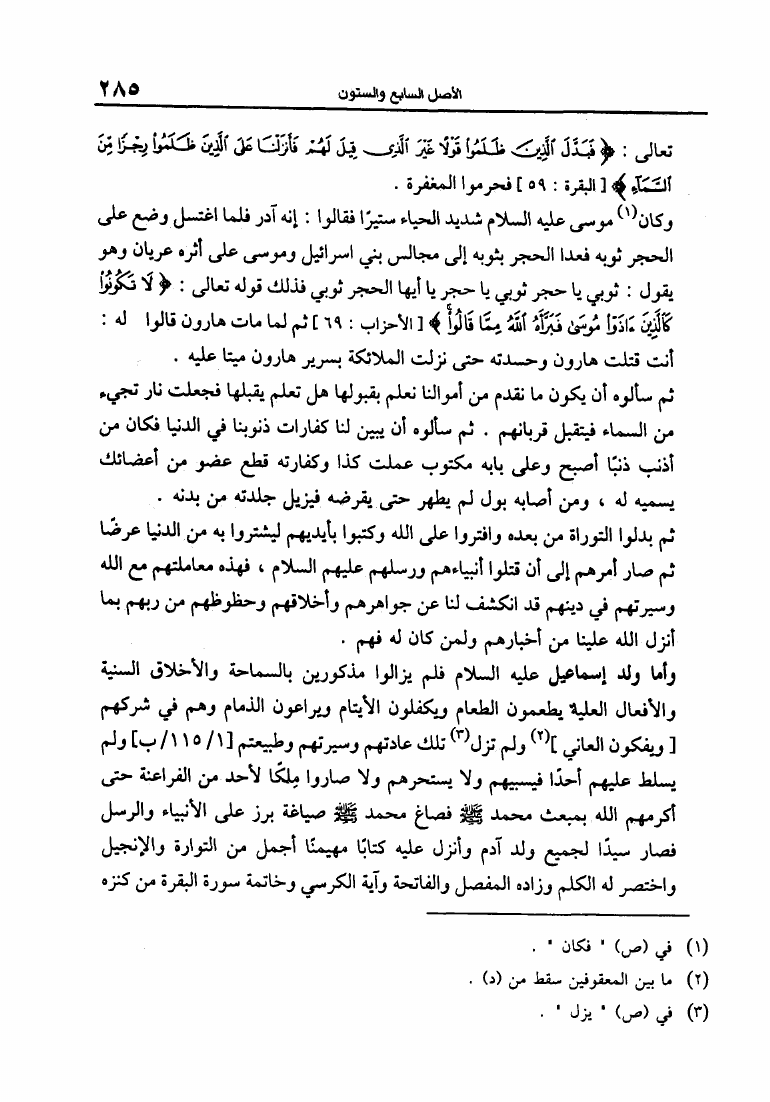 الأصل السابع والستون ٢٨٥
تعالى : ﴿ فَبَدَّلَ ٱلَّذِينَ ظَلَمُوا۟ قَوْلًا غَيْرَ ٱلَّذِى قِيلَ لَهُمْ فَأَنزَلْنَا عَلَى ٱلَّذِينَ ظَلَمُوا۟ رِجْزًا مِّنَ
ٱلسَّمَآءِ ﴾ [ البقرة : ٥٩ ] فحرموا المغفرة .
وكان(١) موسى عليه السلام شديد الحياء ستيرًا فقالوا : إنه آدر فلما اغتسل وضع على
الحجر ثوبه فعدا الحجر بثوبه إلى مجالس بني اسرائيل وموسى على أثره عريان وهو
يقول : ثوبي يا حجر ثوبي يا حجر يا أيها الحجر ثوبي فذلك قوله تعالى : ﴿ لَا تَكُونُوا۟
كَٱلَّذِينَ ءَاذَوْا۟ مُوسَىٰ فَبَرَّأَهُ ٱللَّهُ مِمَّا قَالُوا۟ ﴾ [ الأحزاب : ٦٩ ] ثم لما مات هارون قالوا له :
أنت قتلت هارون وحسدته حتى نزلت الملائكة بسرير هارون ميتا عليه .
ثم سألوه أن يكون ما نقدم من أموالنا نعلم بقبولها هل تعلم يقبلها فجعلت نار تجيء
من السماء فيتقبل قربانهم . ثم سألوه أن يبين لنا كفارات ذنوبنا في الدنيا فكان من
أذنب ذنبًا أصبح وعلى بابه مكتوب عملت كذا وكفارته قطع عضو من أعضائك
يسميه له ، ومن أصابه بول لم يطهر حتى يقرضه فيزيل جلدته من بدنه .
ثم بدلوا التوراة من بعده وافتروا على الله وكتبوا بأيديهم ليشتروا به من الدنيا عرضًا
ثم صار أمرهم إلى أن قتلوا أنبياءهم ورسلهم عليهم السلام ، فهذه معاملتهم مع الله
وسيرتهم في دينهم قد انكشف لنا عن جواهرهم وأخلاقهم وحظوظهم من ربهم بما
أنزل الله علينا من أخبارهم ولمن كان له فهم .
وأما ولد إسماعيل عليه السلام فلم يزالوا مذكورين بالسماحة والأخلاق السنية
والأفعال العلية يطعمون الطعام ويكفلون الأيتام ويراعون الذمام وهم في شركهم
[ ويفكون العاني ](٢) ولم تزل(٣) تلك عادتهم وسيرتهم وطبيعتم [١ /١١٥/ ب] ولم
يسلط عليهم أحدًا فيسبيهم ولا يستحرهم ولا صاروا مِلكًا لأحد من الفراعنة حتى
أكرمهم الله بمبعث محمد ﷺ فصاغ محمد ﷺ صياغة برز على الأنبياء والرسل
فصار سيدًا لجميع ولد آدم وأنزل عليه كتابًا مهيمنًا أجمل من التوارة والإنجيل
واختصر له الكلم وزاده المفصل والفاتحة وآية الكرسي وخاتمة سورة البقرة من كنزه
(١) في (ص) " فكان " .
(٢) ما بين المعقوفين سقط من (د) .
(٣) في (ص) " يزل " .